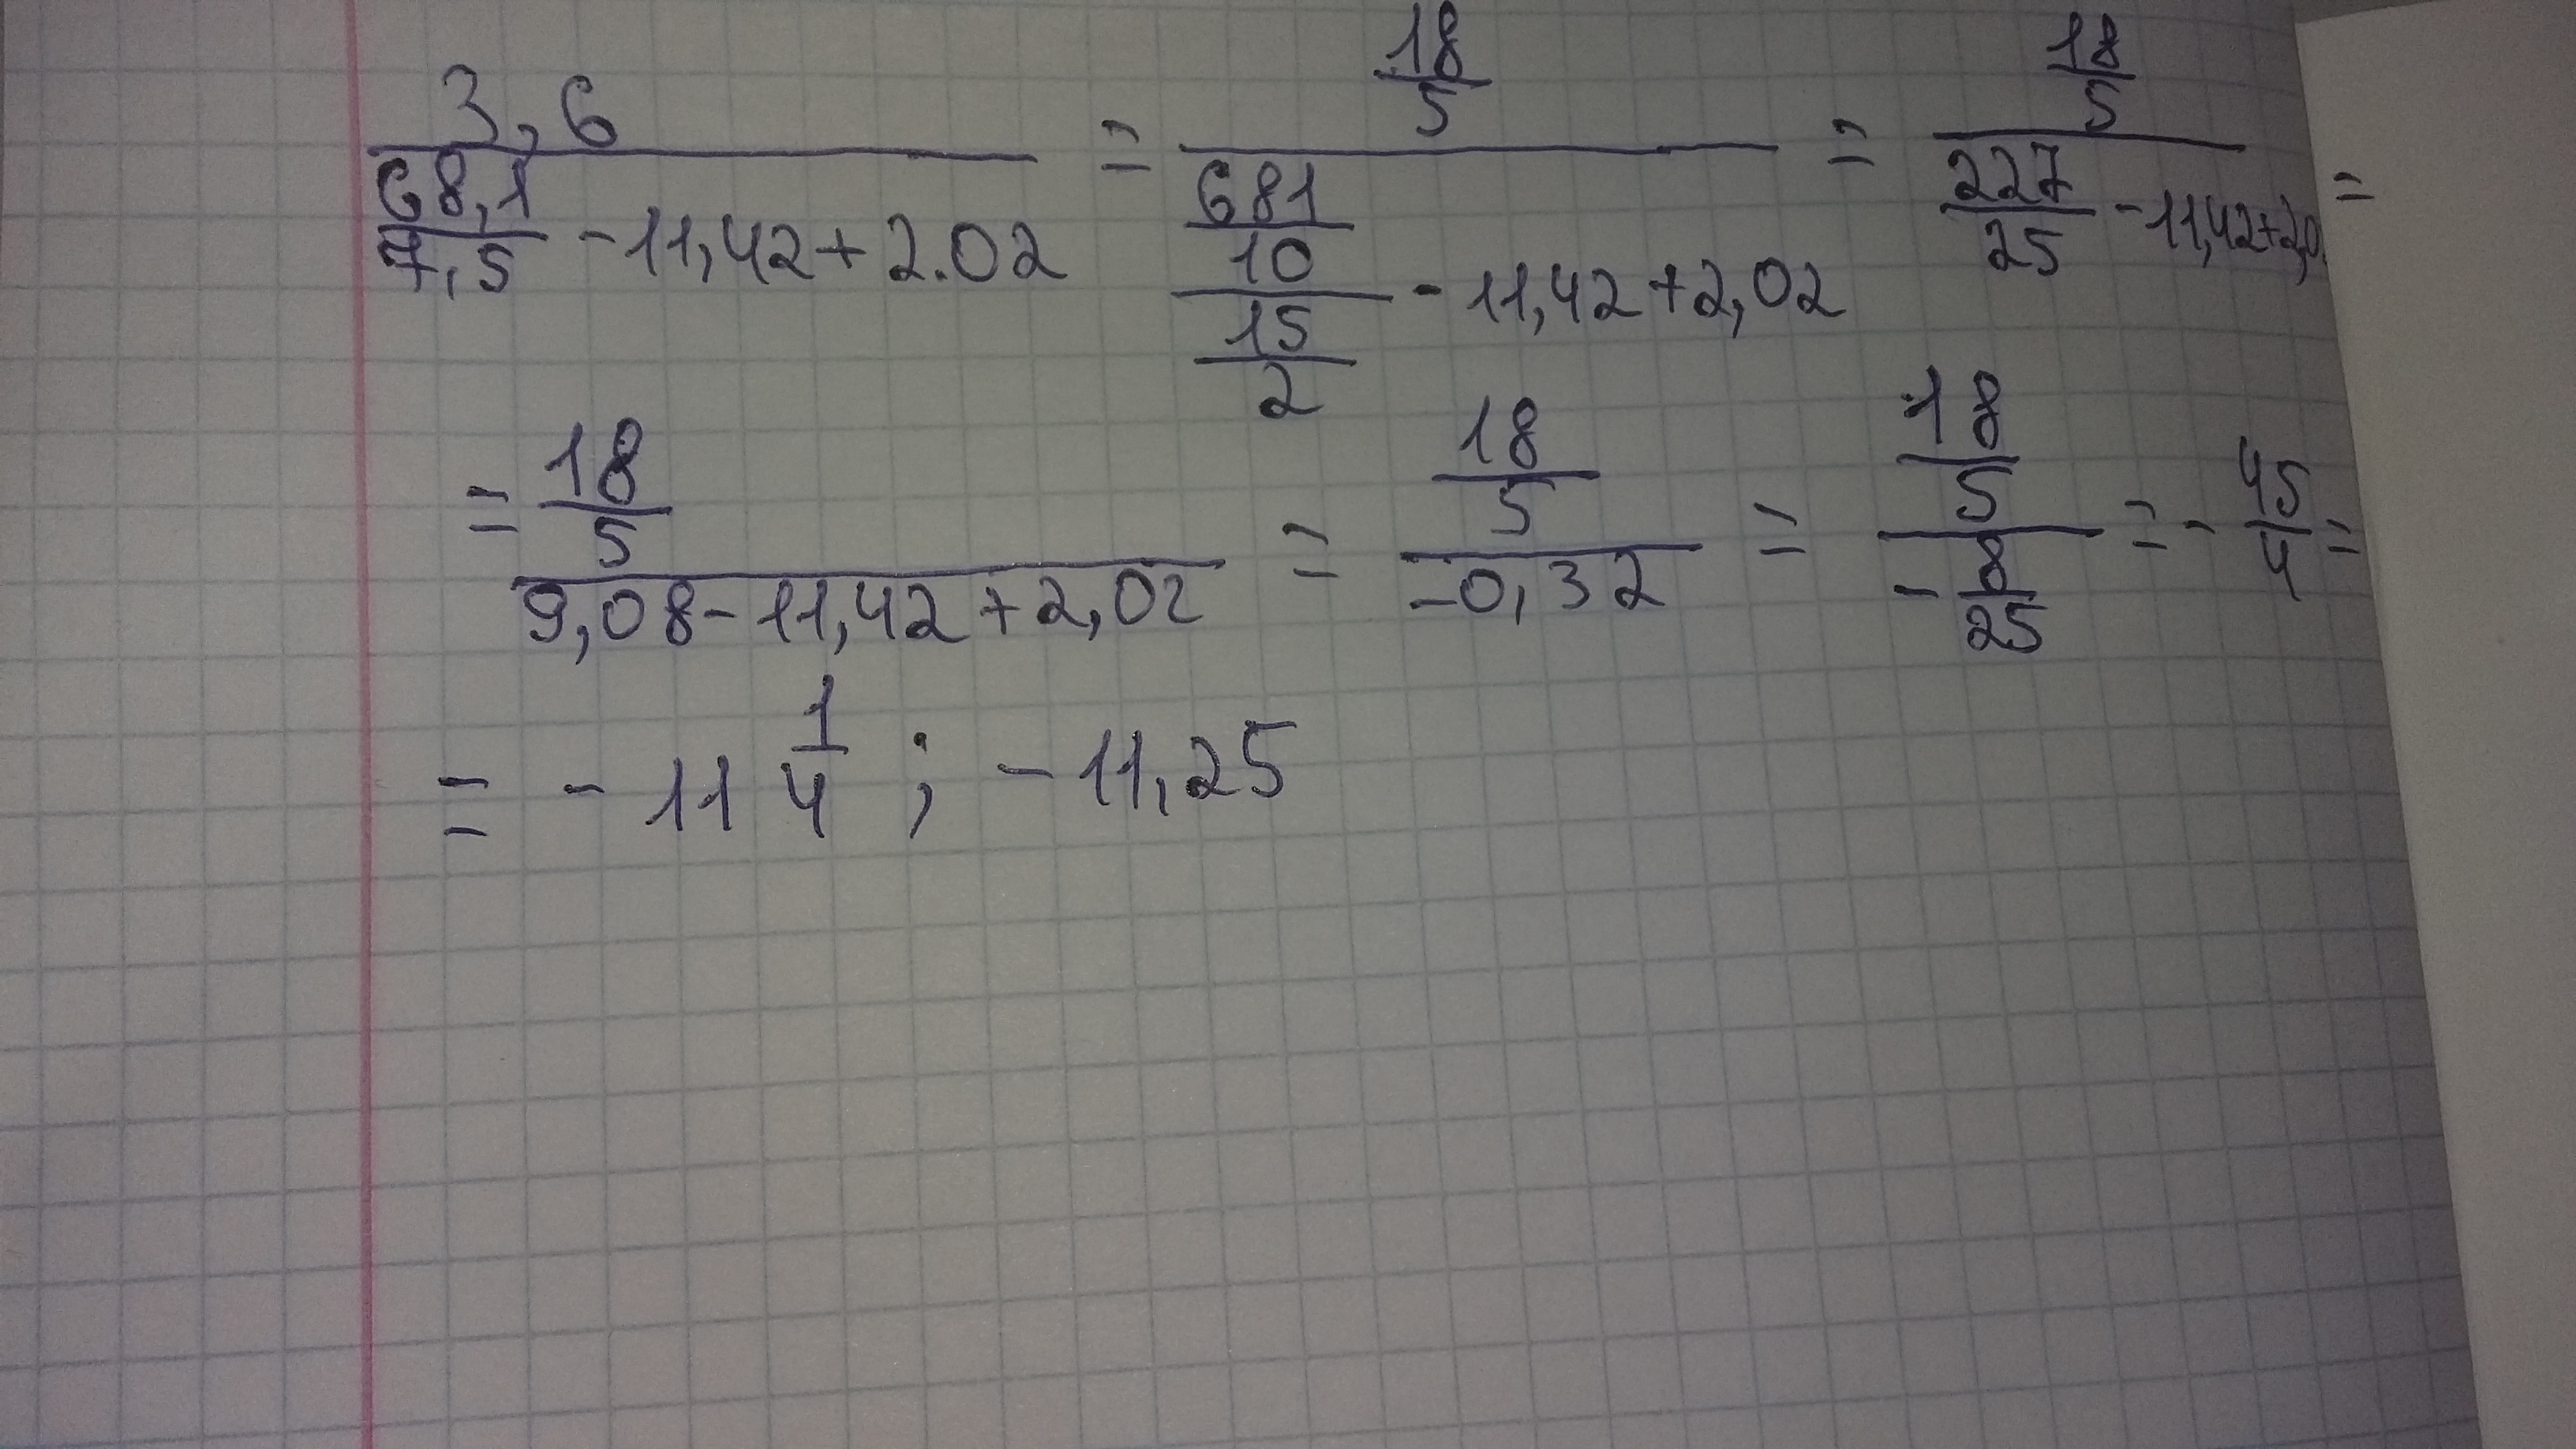 3,6 / (68,1/7,5 - 11,42 + 2.02) = (18/5) / ((681/10)/(15/2) - 11,42 + 2,02) = (18/5) / (227/25 - 11,42 + 2,0) =
= (18/5) / (9,08 - 11,42 + 2,02) = (18/5) / (-0,32) = (18/5) / (-8/25) = - 45/4 =
= - 11 1/4 ; - 11,25